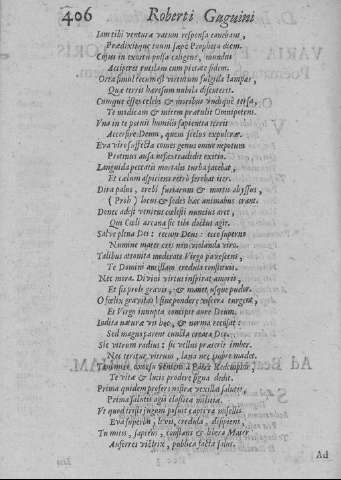 406 Roberti Gaguini
Iam tibi venturæ vatum responsa canebant,
Prædixitque tuum sæpe Propheta diem.
Cujus in exortu pulsa caligine, mundus
Acciperet puellam cum pietate fidem.
Orta simul tecum est virtutum fulgida lampas,
Quæ terris hæresum nubila discuteret.
Cumque esses celebs & moribus undique tersa,
Te medicam & mitem prætulit Omnipotens.
Una in te potuit humilis sapientia terris
Accersire Deum, quem scelus expulerat.
Eva viro affecta comes genus omne nepotum
Protinus ausa nefas tradidit exitio.
Languida peccatis mortalis turba jacebat,
Et cælum aspiciens retrò ferebat iter.
Dira palus, erebi furiarum & mortis abyssus,
(Proh) locus & sedes hæc animabus erant.
Donec adest veniens cœlesti nuncius arce,
Qui Cœli arcana sic tibi doctus agit.
Salve plena Dei: tecum Deus: ecce superno
Numine mater eris non violanda viro.
Talibus attonita moderate Virgo pavescens,
Te Domini ancillam credula constituis.
Nec mora. Divini virtus inspirat amoris,
Et sis prole gravis, & manet usque pudor.
O fœlix gravitas! sine pondere viscera turgent,
Et Virgo inventa concipit aure Deum.
Iudita natura vis hoc, & norma recusat:
Sed magis parent cuncta creata Deo.
Sic vitrum radius: sic vellus præterit imber.
Nec teritur vitrum, lana nec imbre madet.
Tam mire conviso venientem Pater Redemptor,
Te vitæ & lucis prodere signa dedit.
Prima quidem profers miseræ vexilla salutis,
Prima salutis agis classica militiæ.
Et quod tristi jugum posuit captiva misellis
Eva superbii, levis, credula, dissipens,
Tu mitis, sapiens, constans & libera Mater
Auferres victrix, publica facta salus.
Ad